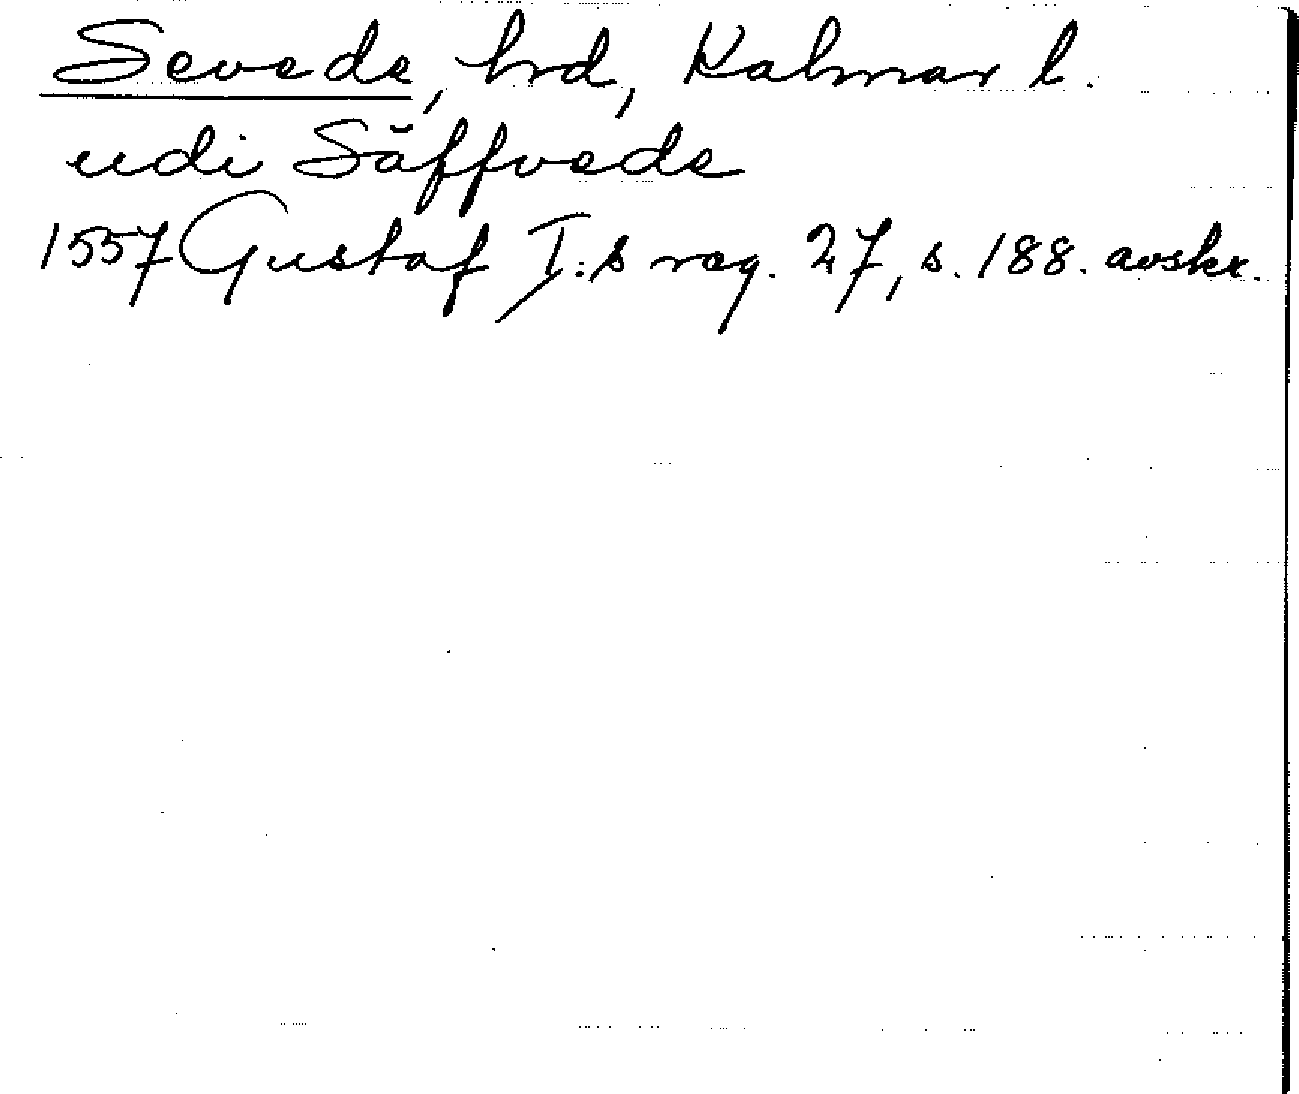 Sevede, hrd, Kalmar l.
udi Säffvede
1557 Gustaf I:s reg. 27, s. 188. avskr.